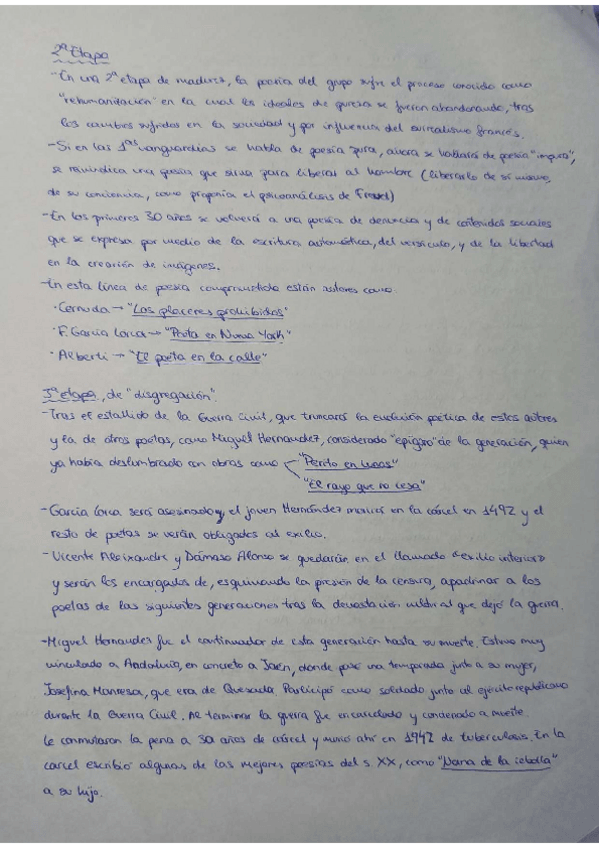 2ª Etapa
-En una 2ª etapa de madurez, la poesía del grupo sufre el proceso conocido como
"rehumanización" en la cual los ideales de pureza se fueron abandonando, tras
los cambios sufridos en la sociedad y por influencia del surrealismo francés.
-Si en las 1ªs vanguardias se habla de poesía "pura", ahora se hablará de poesía "impura",
se reivindica una poesía que sirva para liberar al hombre (liberarlo de sí mismo,
de su conciencia, como proponía el psicoanálisis de Freud)
-En los primeros 30 años se volverá a una poesía de denuncia y de contenidos sociales
que se expresa por medio de la escritura automática, del versículo, y de la libertad
en la creación de imágenes.
-En esta línea de poesía comprometida están autores como
·Cernuda → "Los placeres prohibidos"
·F. García Lorca → "Poeta en Nueva York"
·Alberti → "El poeta en la calle"
3ª etapa, de "disgregación".
-Tras el estallido de la Guerra Civil, que truncará la evolución poética de estos autores
y la de otros poetas, como Miguel Hernandez, considerado "epígono" de la generación, quien
ya había deslumbrado con obras como "Perito en lunas"
"El rayo que no cesa"
-García Lorca será asesinado y el joven Hernández morirá en la cárcel en 1492 y el
resto de poetas se verán obligados al exilio.
-Vicente Aleixandre y Dámaso Alonso se quedarán en el llamado «exilio interior»
y serán los encargados de, esquivando la presión de la censura, apadrinar a los
poetas de las siguientes generaciones tras la devastación cultural que dejó la guerra.
-Miguel Hernandez fue el continuador de esta generación hasta su muerte. Estuvo muy
vinculado a Andalucía, en concreto a Jaén, donde pasó una temporada junto a su mujer,
Josefina Manresa, que era de Quesada. Participó como soldado junto al ejército republicano
durante la Guerra Civil. Al terminar la guerra fue encarcelado y condenado a muerte.
Le conmutaron la pena a 30 años de cárcel y murió ahí en 1942 de tuberculosis. En la
carcel escribió algunas de las mejores poesías del s XX, como "Nana de la cebolla"
a su hijo.